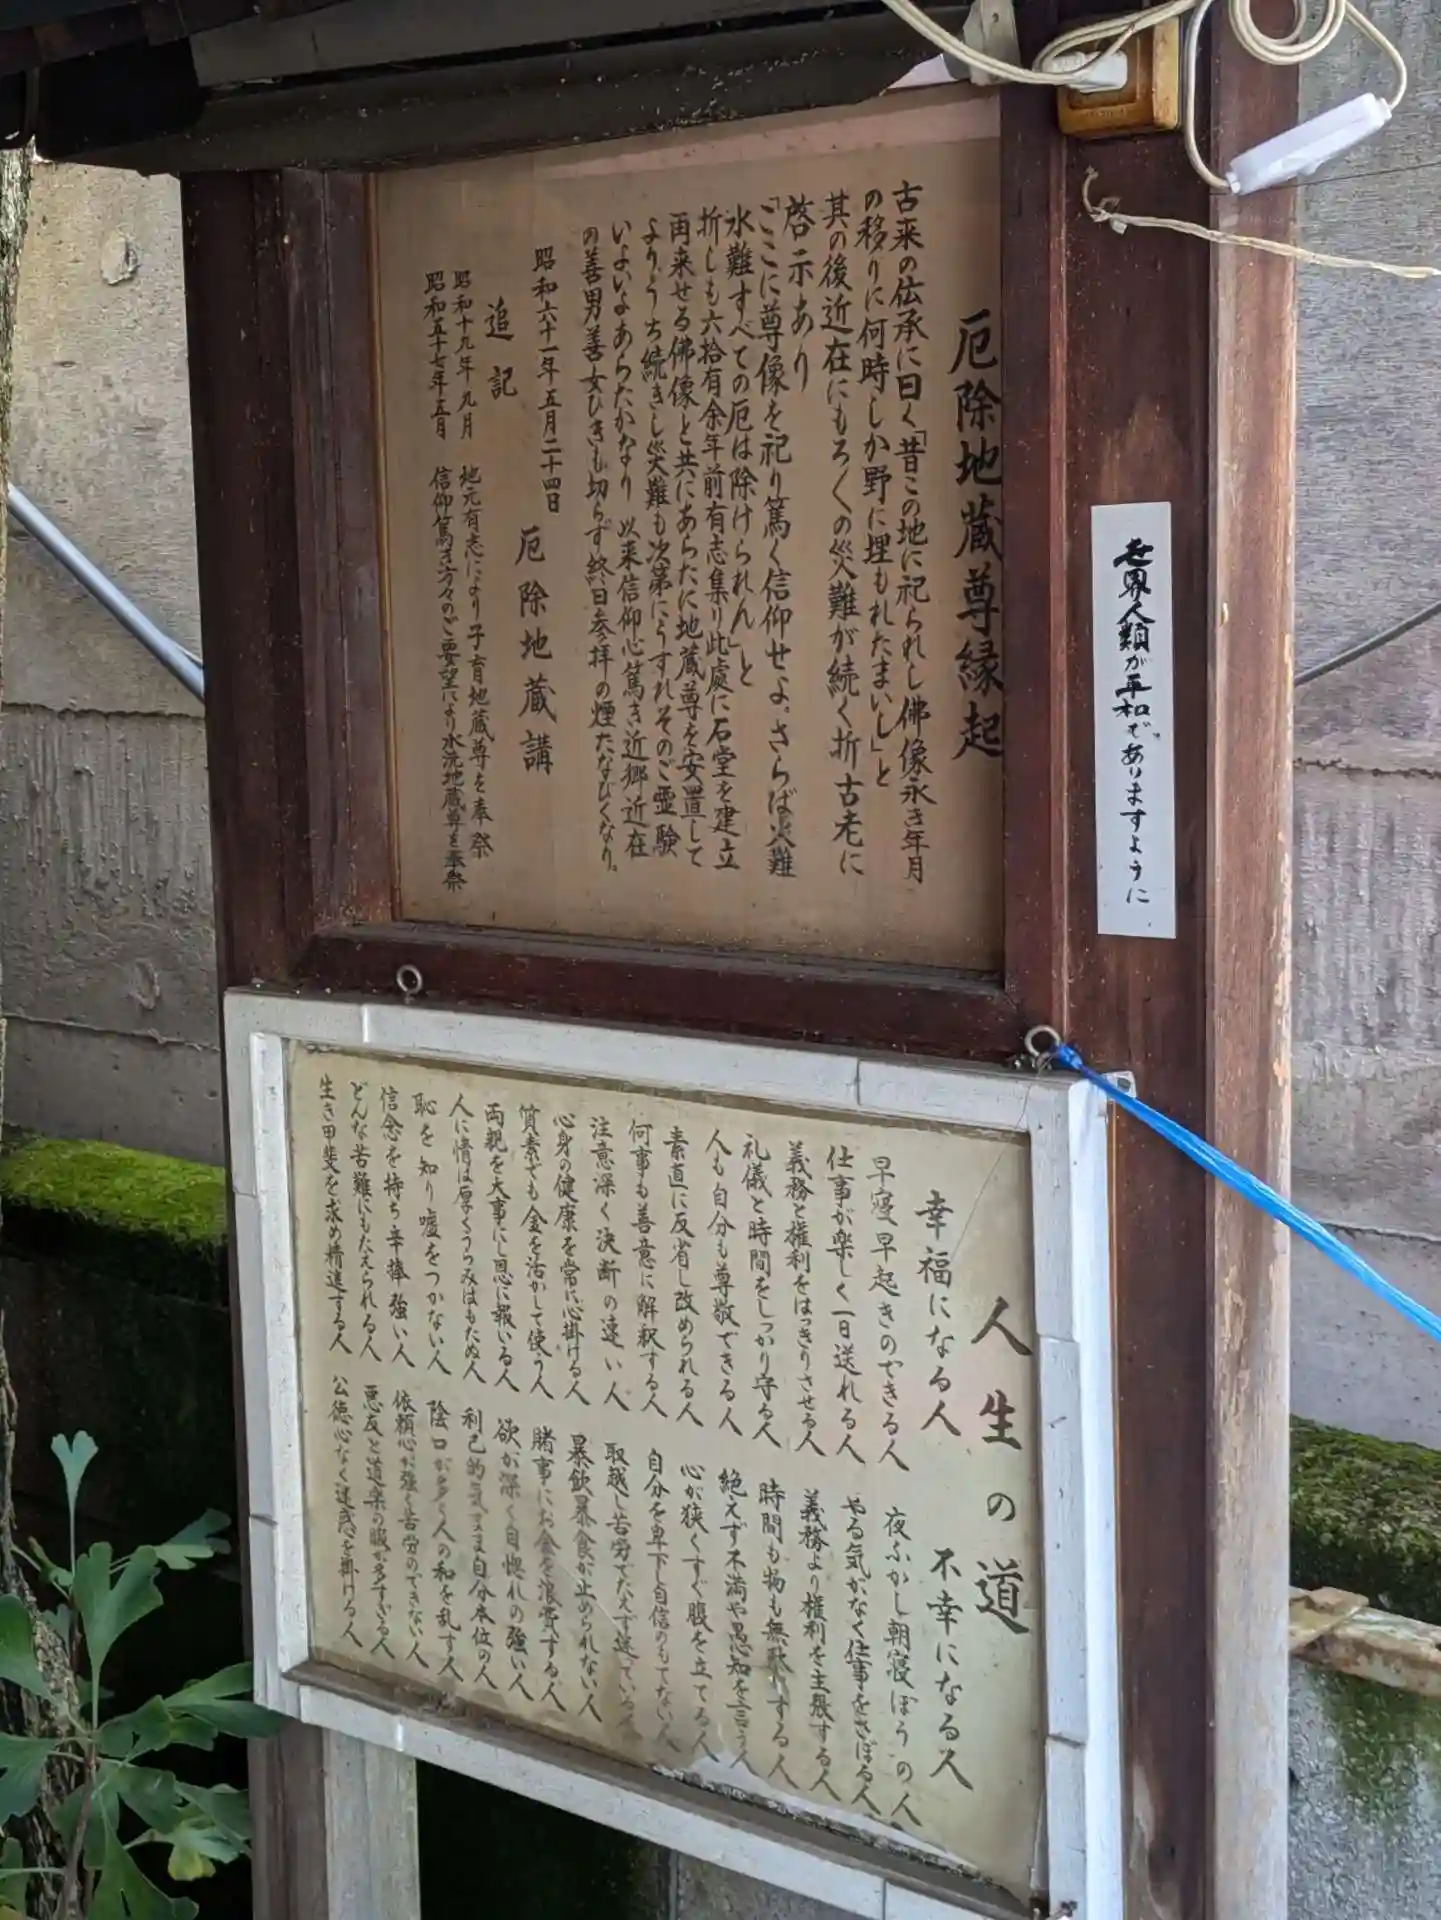 厄除地蔵尊縁起
古来の伝承に曰く「昔この地に祀られし佛像永き年月
の移りに何時しか野に埋もれたまいし」と
其の後近在にもろ〱の災難が続く折古老に
啓示あり
「ここに尊像を祀り篤く信仰せよ。さらば火難
水難すべての厄は除けられん」と
折しも六拾有余年前有志集り此處に石堂を建立
再来せる佛像と共にあらたに地蔵尊を安置して
よりうち続きし災難も次第にうすれそのご霊験
いよいよあらたかなり 以来信仰心篤き近郷近在
の善男善女ひきも切らず終日参拝の煙たなびくなり。
昭和六十一年五月二十四日
厄除地蔵講
追記
昭和十九年九月 地元有志により子育地蔵尊を奉祭
昭和五十七年五月 信仰篤き方々のご要望により水洗地蔵尊を奉祭
世界人類が平和でありますように
人生の道
幸福になる人
早寝早起きのできる人
仕事が楽しく一日送れる人
義務と権利をはっきりさせる人
礼儀と時間をしっかり守る人
人も自分も尊敬できる人
素直に反省し改められる人
何事も善意に解釈する人
注意深く決断の速い人
心身の健康を常に心掛ける人
質素でも金を活かして使う人
両親を大事にし恩に報いる人
人に情は厚くうらみはもたぬ人
恥を知り嘘をつかない人
信念を持ち辛捧強い人
どんな苦難にもたえられる人
生き甲斐を求め精進する人
不幸になる人
夜ふかし朝寝ぼうの人
やる気がなく仕事をさぼる人
義務より権利を主張する人
時間も物も無駄にする人
絶えず不満や愚知を言う人
心が狭くすぐ腹を立てる人
自分を卑下し自信のもてない人
取越し苦労でたえず迷っている人
暴飲暴食が止められない人
賭事にお金を浪費する人
欲が深く自惚れの強い人
利己的気まま自分本位の人
陰口が多く人の和を乱す人
依頼心が強く苦労のできない人
悪友と道楽の暇が多すぎる人
公徳心なく迷惑を掛ける人